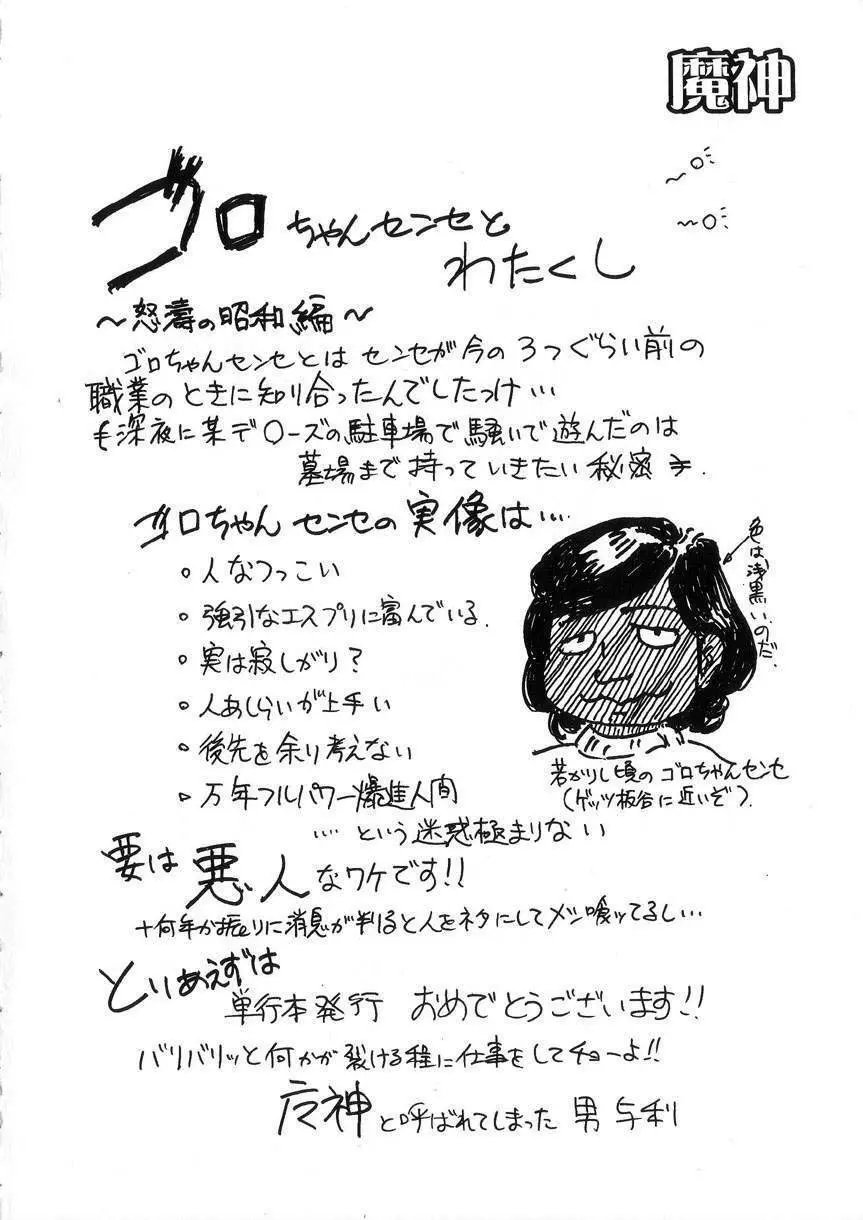 魔神
ゴロちゃんセンセと
わたくし
～怒濤の昭和編～
ゴロちゃんセンセとは センセが今の3つぐらい前の
職業のときに知り合ったんでしたっけ…
深夜に某デ〇ーズの駐車場で騒いで遊んだのは
墓場まで持っていきたい秘密
ゴロちゃんセンセの実像は…
○人なつっこい
○強引なエスプリに富んでいる.
○実は寂しがり?
○人あしらいが上手い
○後先を余り考えない
▷万年フルパワー爆進人間
…という迷惑極まりない
色は浅黒いのだ.
若かりし頃のゴロちゃんセンセ
(ゲッツ板谷に近いぞ).
要は悪人なワケです!!
十何年か振りに消息が判ると人をネタにしてメシ喰ッてるし…
とりあえずは
単行本発行 おめでとうございます!!
バリバリッと何かが裂ける程に仕事をしてチョーよ!!
神と呼ばれてしまった男 与利